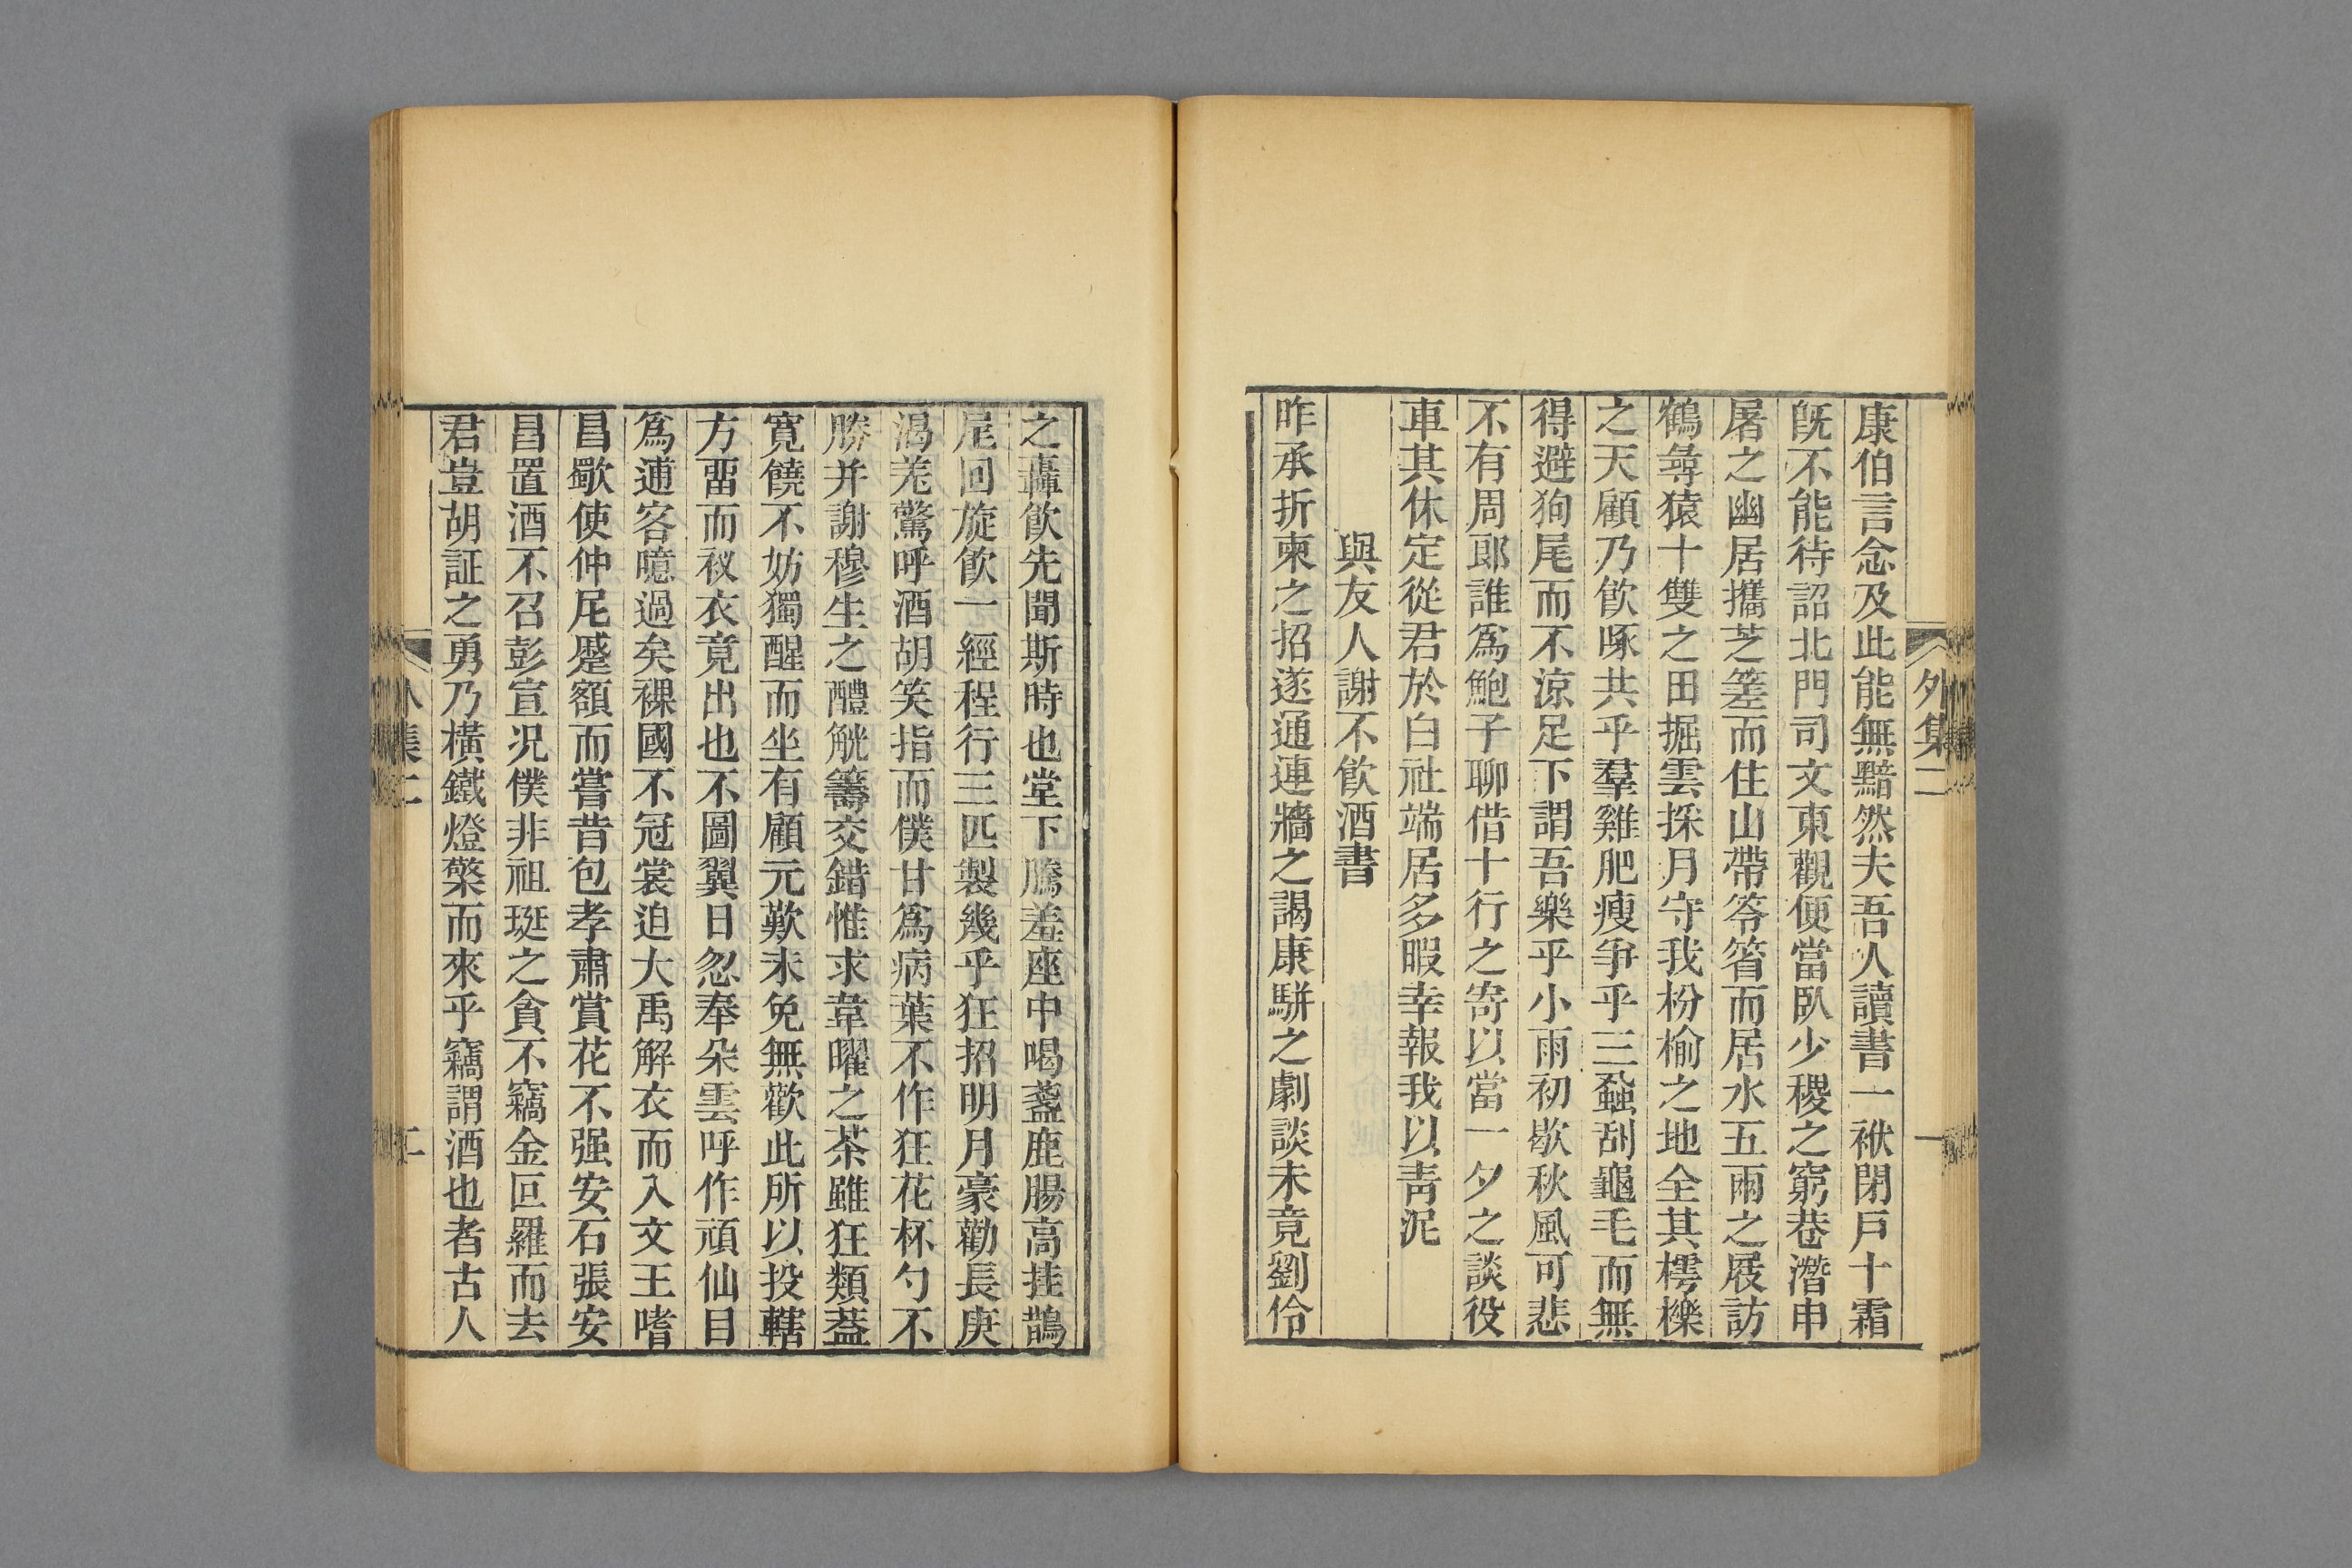 外集二
一
康伯言念及此能無黯然夫吾人讀書一袱閉戸十霜
旣不能待詔北門司文東觀便當臥少稷之窮巷潛申
屠之幽居攜芝䇲而住山帶笭箵而居水五兩之屐訪
鶴尋猿十雙之田掘雲採月守我枌榆之地全其樗櫟
之天顧乃飮啄共乎羣雞肥瘦爭乎三蝨刮龜毛而無
得避狗尾而不涼足下謂吾樂乎小雨初歇秋風可悲
不有周郎誰爲鮑子聊借十行之寄以當一夕之談役
車其休定從君於白社端居多暇幸報我以靑泥
與友人謝不飮酒書
昨承折柬之招遂通連牆之謁康駢之劇談未竟劉伶
之轟飮先聞斯時也堂下騰羞座中喝盞鹿腸高挂鵲
尾回旋飮一經程行三匹製幾乎狂招明月豪勸長庚
渴羌驚呼酒胡笑指而僕甘爲病葉不作狂花杯勺不
勝并謝穆生之醴觥籌交錯惟求韋曜之茶雖狂類葢
寛饒不妨獨醒而坐有顧元歎未免無歡此所以投轄
方畱而衩衣竟出也不圖翼日忽奉朵雲呼作頑仙目
爲逋客噫過矣裸國不冠裳迫大禹解衣而入文王嗜
昌歜使仲尼蹙額而嘗昔包孝肅賞花不强安石張安
昌置酒不召彭宣况僕非祖珽之貪不竊金叵羅而去
君豈胡証之勇乃橫鐵燈檠而來乎竊謂酒也者古人
集二
二